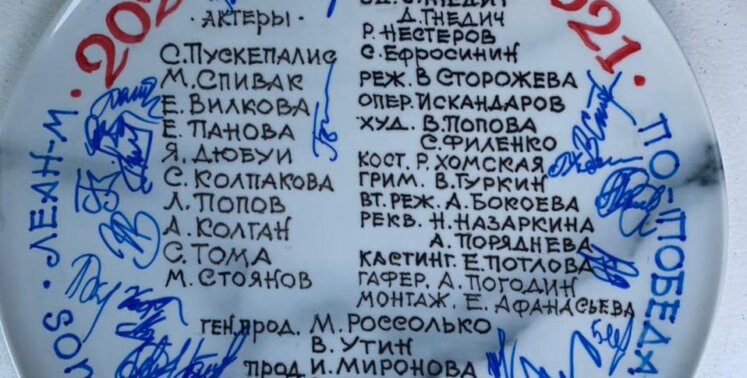 202
· АКТЕРЫ ·
С. ПУСКЕПАЛИС
М. СПИВАК
Е. ВИЛКОВА
Е. ПАНОВА
Я. ДЮБУИ
С. КОЛПАКОВА
Л. ПОПОВ
А. КОЛГАН
С. ТОМА
М. СТОЯНОВ
Д. ГНЕДИЧ
Р. НЕСТЕРОВ
С. ЕФРОСИНИН
РЕЖ. В СТОРОЖЕВА
ОПЕР. ИСКАНДАРОВ
ХУД. В. ПОПОВА
С. ФИЛЕНКО
КОСТ. Р. ХОМСКАЯ
ГРИМ. В. ТУРКИН
ВТ. РЕЖ. А. БОКОЕВА
РЕКВ. Н. НАЗАРКИНА
А. ПОРЯДНЕВА
КАСТИНГ. Е. ПОТЛОВА
ГАФЕР. А. ПОГОДИН
МОНТАЖ. Е. АФАНАСЬЕВА
ГЕН. ПРОД. М. РОССОЛЬКО
В. УТИН
ПРОД И. МИРОНОВА
021 ·
SOU · ЛЕАН-М ·
ПО-ПОБЕДА